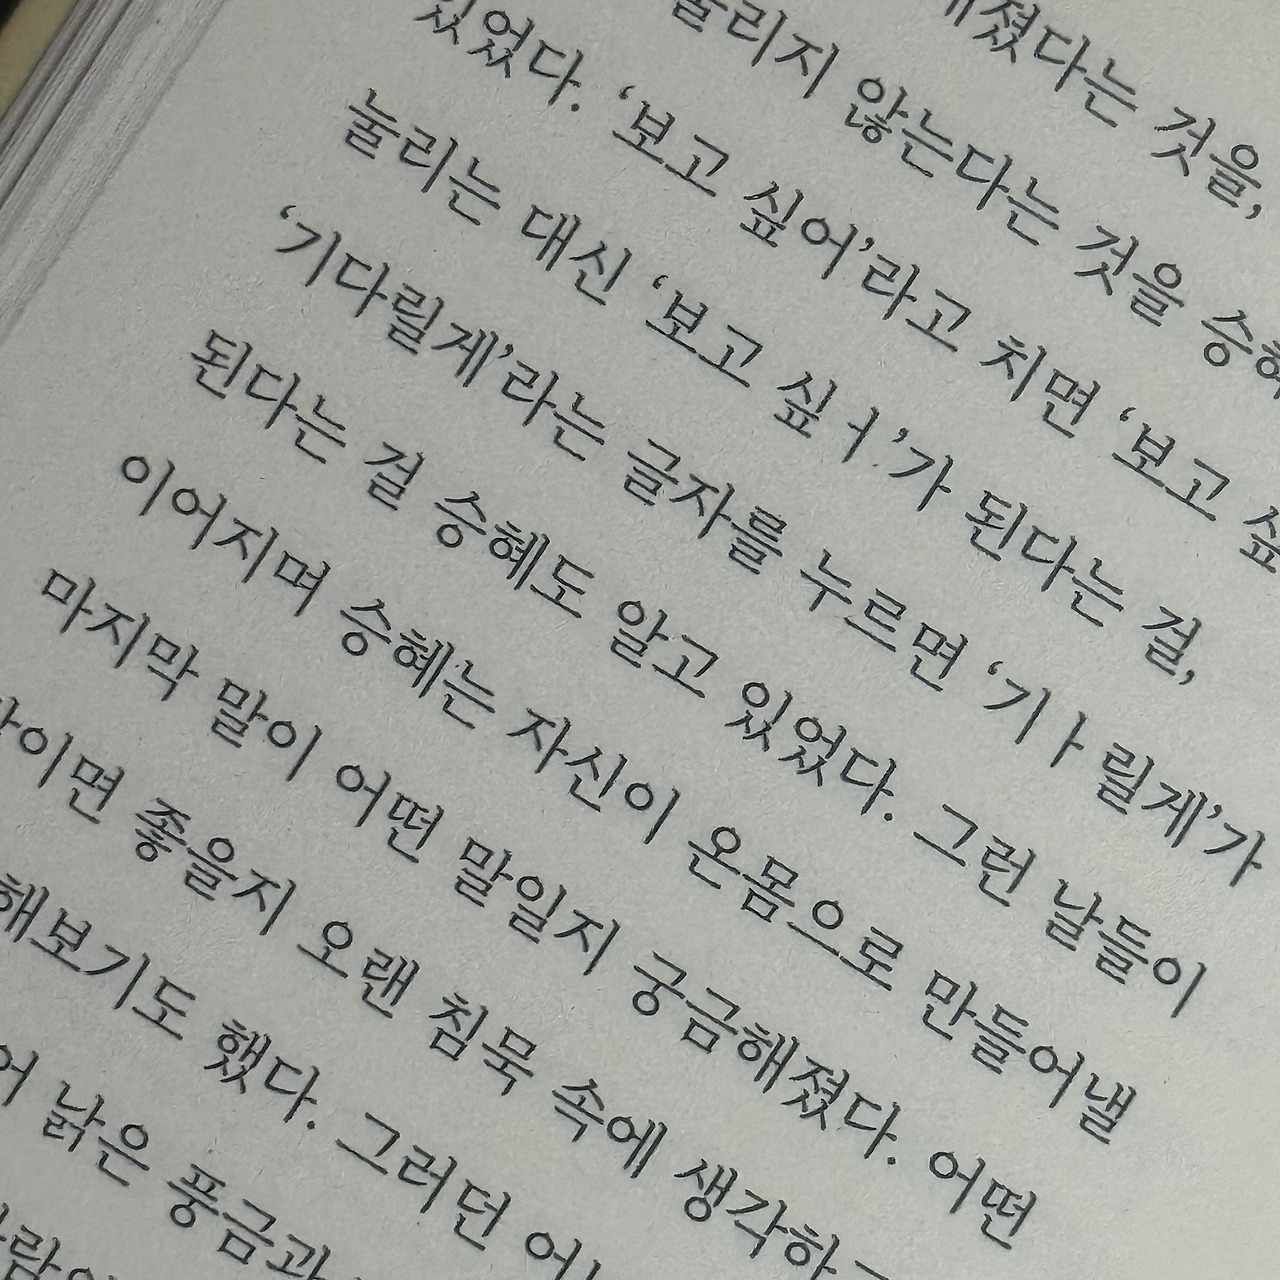 졌다는 것을,
눌리지 않는다는 것을 승혜
있었다. ‘보고 싶어’라고 치면 ‘보고 싶
눌리는 대신 ‘보고 싶ㅓ’가 된다는 걸,
‘기다릴게’라는 글자를 누르면 ‘기ㅏ릴게’가
된다는 걸 승혜도 알고 있었다. 그런 날들이
이어지며 승혜는 자신이 온몸으로 만들어낼
마지막 말이 어떤 말일지 궁금해졌다. 어떤
말이면 좋을지 오랜 침묵 속에 생각하
해보기도 했다. 그러던
어 낡은 풍금과